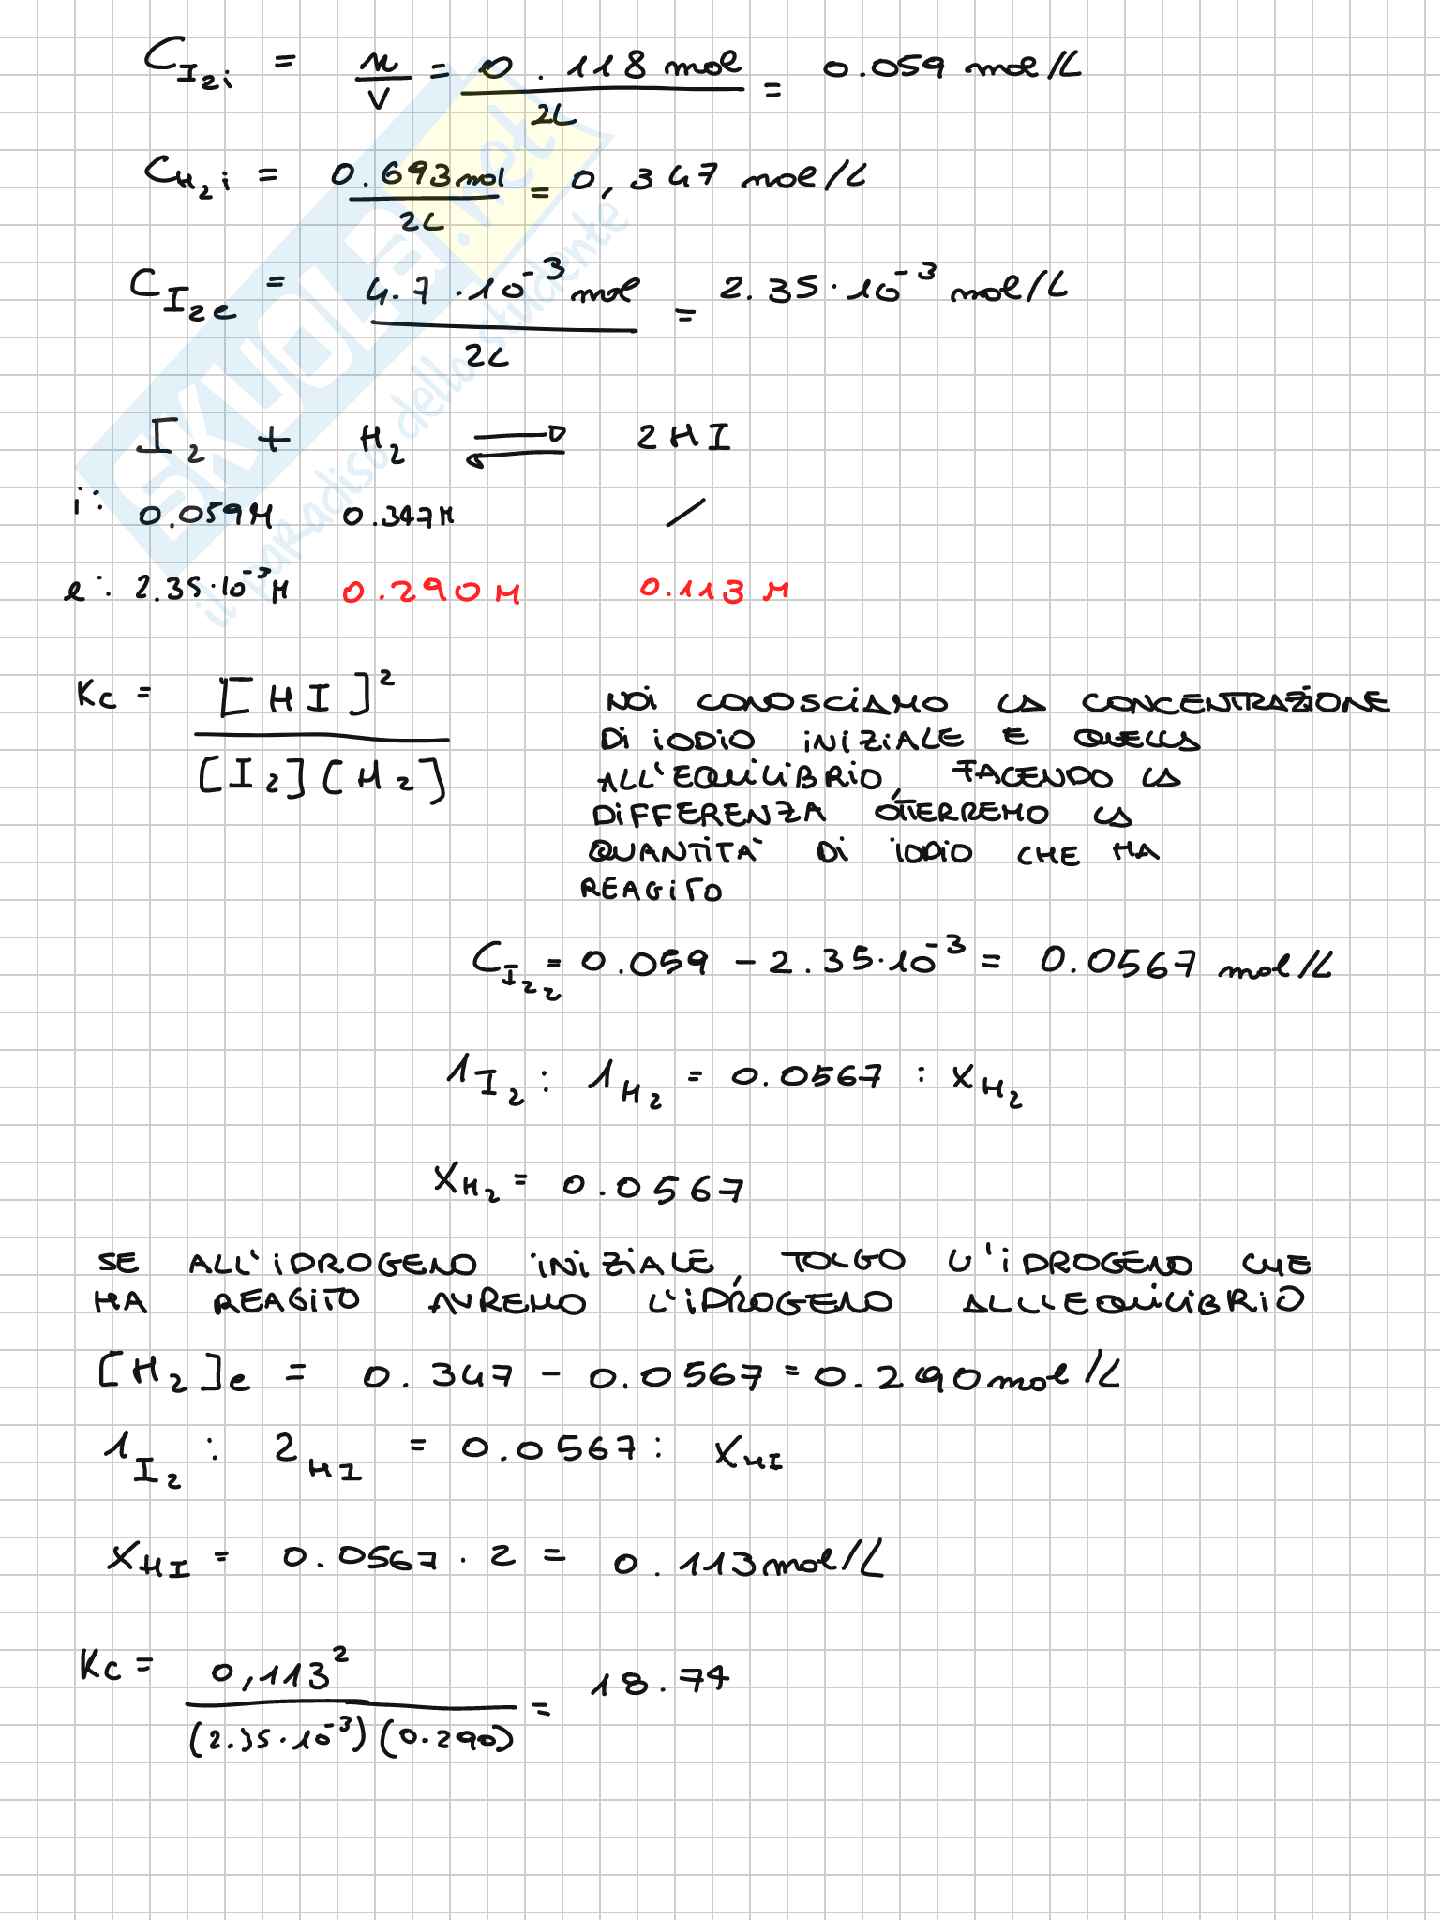 C_I₂i = n/V = 0.118 mol / 2L = 0.059 mol/L
C_H₂i = 0.693 mol / 2L = 0,347 mol/L
C_I₂e = 4.7·10⁻³ mol / 2L = 2.35·10⁻³ mol/L
I₂ + H₂ ⇌ 2HI
i: 0.059M 0.347M /
e: 2.35·10⁻³M 0.290 M 0.113 M
Kc = [HI]² / [I₂][H₂]
NOI CONOSCIAMO LA CONCENTRAZIONE
DI IODIO INIZIALE E QUELLA
ALL'EQUILIBRIO, FACENDO LA
DIFFERENZA OTTERREMO LA
QUANTITA' DI IODIO CHE HA
REAGITO
C_I₂₂ = 0.059 - 2.35·10⁻³ = 0.0567 mol/L
1_I₂ : 1_H₂ = 0.0567 : X_H₂
X_H₂ = 0.0567
SE ALL'IDROGENO INIZIALE, TOLGO L'IDROGENO CHE
HA REAGITO AVREMO L'IDROGENO ALL'EQUILIBRIO
[H₂]e = 0.347 - 0.0567 = 0.290 mol/L
1_I₂ : 2_HI = 0.0567 : X_HI
X_HI = 0.0567 · 2 = 0.113 mol/L
Kc = 0,113² / (2.35·10⁻³)(0.290) = 18.74
SKUOLA.net
il paradiso dello studente